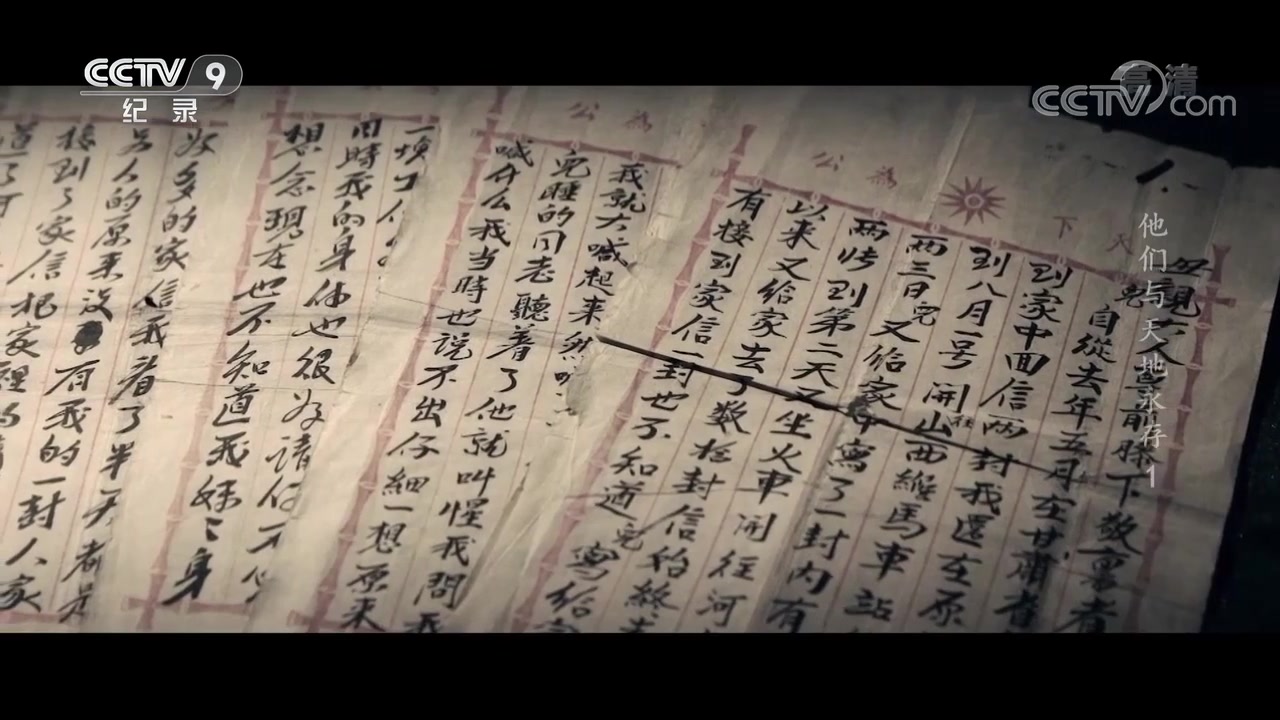 CCTV 9
纪录
高清
CCTV com
他们与天地永存 1
天下
為公
為公
親大人尊前膝下敬稟者
兒自從去年五月在甘肅省
到家中面信兩封我還在原
到八月一号開往山西維馬車站
兩三日兒又给家中寫了一封内有
两张到第二天又坐火車開往河
以来又给家去了数拾封信始終
有接到家信一封也不知道兒寫给
我就大喊起来然
兒睡的同志聽着了他就叫惺我問我
喊什么我当時也说不出仔细一想原来
一块工作
同時我的身体也很好請
想念現在也不知道我妹々身
好多的家信我看了半天都是
另人的原来没有我的一封人家
接到了家信把家裡的
道了